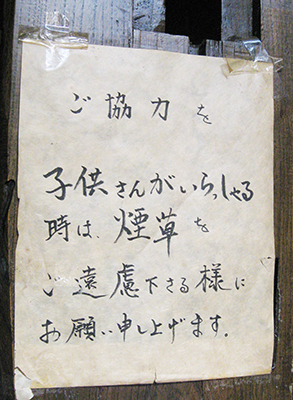 ご協力を
子供さんがいらっしゃる
時は、煙草を
ご遠慮下さる様に
お願い申し上げます。